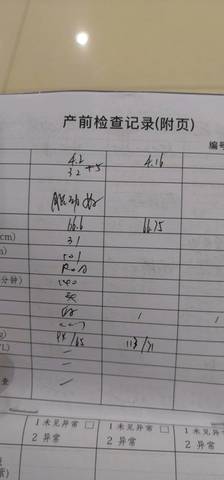 产前检查记录(附页)
编号
4.2 4.16
32+5
胎动好
66.6 66.75
cm) 31
101
ROA
分钟) 140
头
好 /
/L) 113/71
查
1 未见异常 □ 1 未见异常 □ 1 未见异常
2 异常 2 异常 2 异常